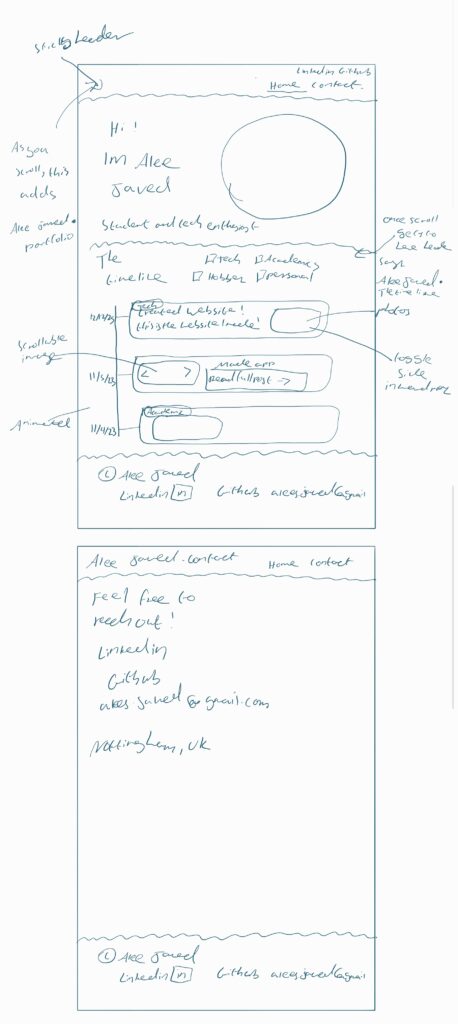 Sticky header
Linkedin Github
Home Contact.
As you
scroll, this
adds
Alee Javed •
portfolio
Hi!
Im Alee
Javed
Student and tech enthusiast
once scroll
gets to
here header
says
Alee Javed •
The timeline
The
timeline
Tech Academics
Hobbies personal
12/11/23
Tech
Created website!
this is the website I made!
photos
Scrollable
image
11/5/23
< >
Made app
Read full post →
toggle
side
Animated
11/4/23
Academic
Alee Javed
Linkedin in Github
Alee Javed • contact Home Contact
Feel free to
reach out!
Linkedin
Github
Nottingham, UK
Alee Javed
Linkedin in Github